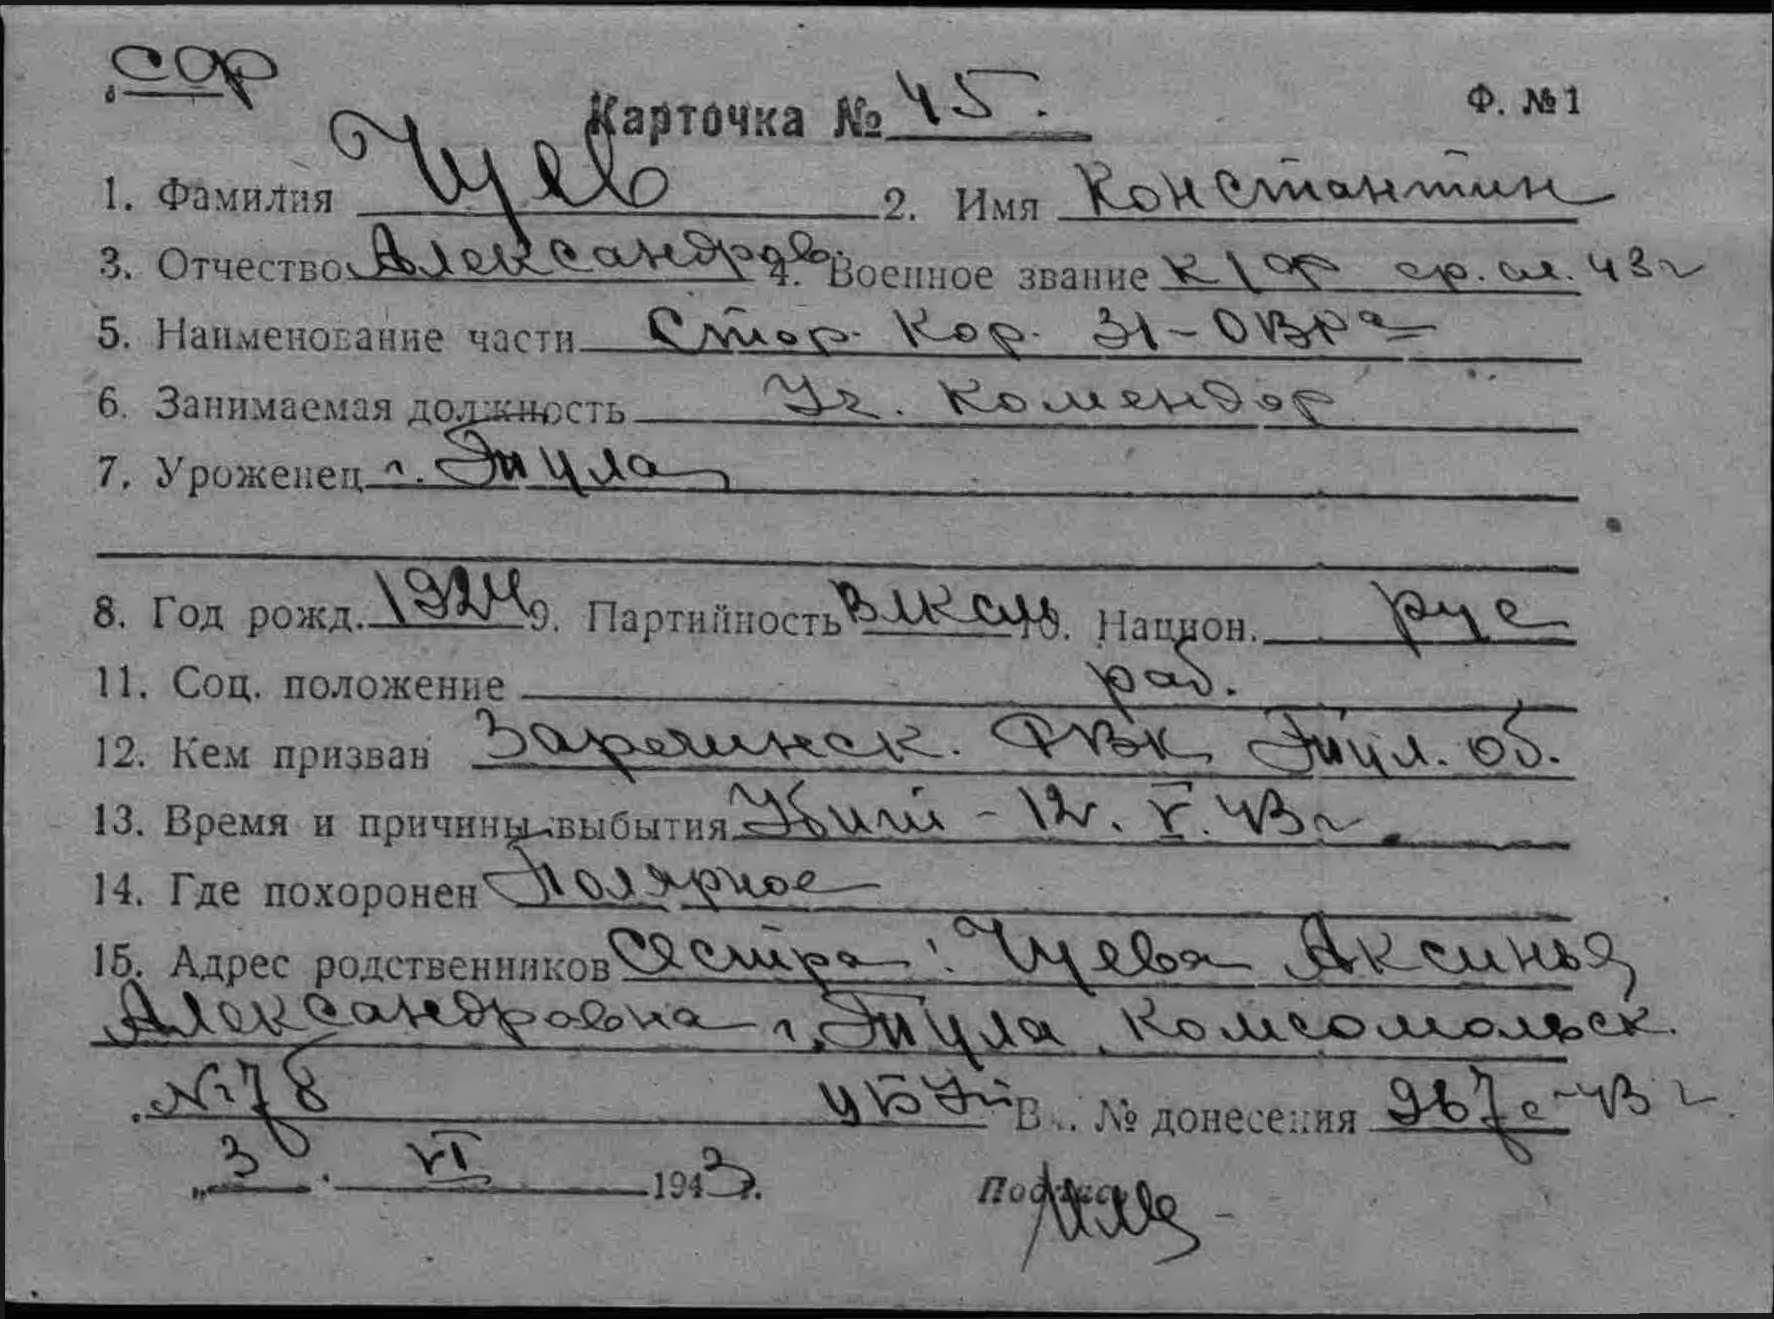 СФ
Карточка № 45. Ф. №1
1. Фамилия Чуев 2. Имя Константин
3. Отчество Александров. 4. Военное звание к/ф ср. сл. 43 г
5. Наименование части Стор. Кор. 31-ОВРа
6. Занимаемая должность Уч. Комендор
7. Уроженец г. Тула
8. Год рожд. 1924 9. Партийность ВЛКСМ 10. Национ. рус
11. Соц. положение раб.
12. Кем призван Заречинск. РВК Тул. об.
13. Время и причины выбытия Убит - 12. V. 43 г.
14. Где похоронен Полярное
15. Адрес родственников Сестра: Чуева Аксинья
Александровна г. Тула, Комсомольск.
№ 78 В.. № донесения 967с-43 г.
„3 . VI 1943г.
Подпись